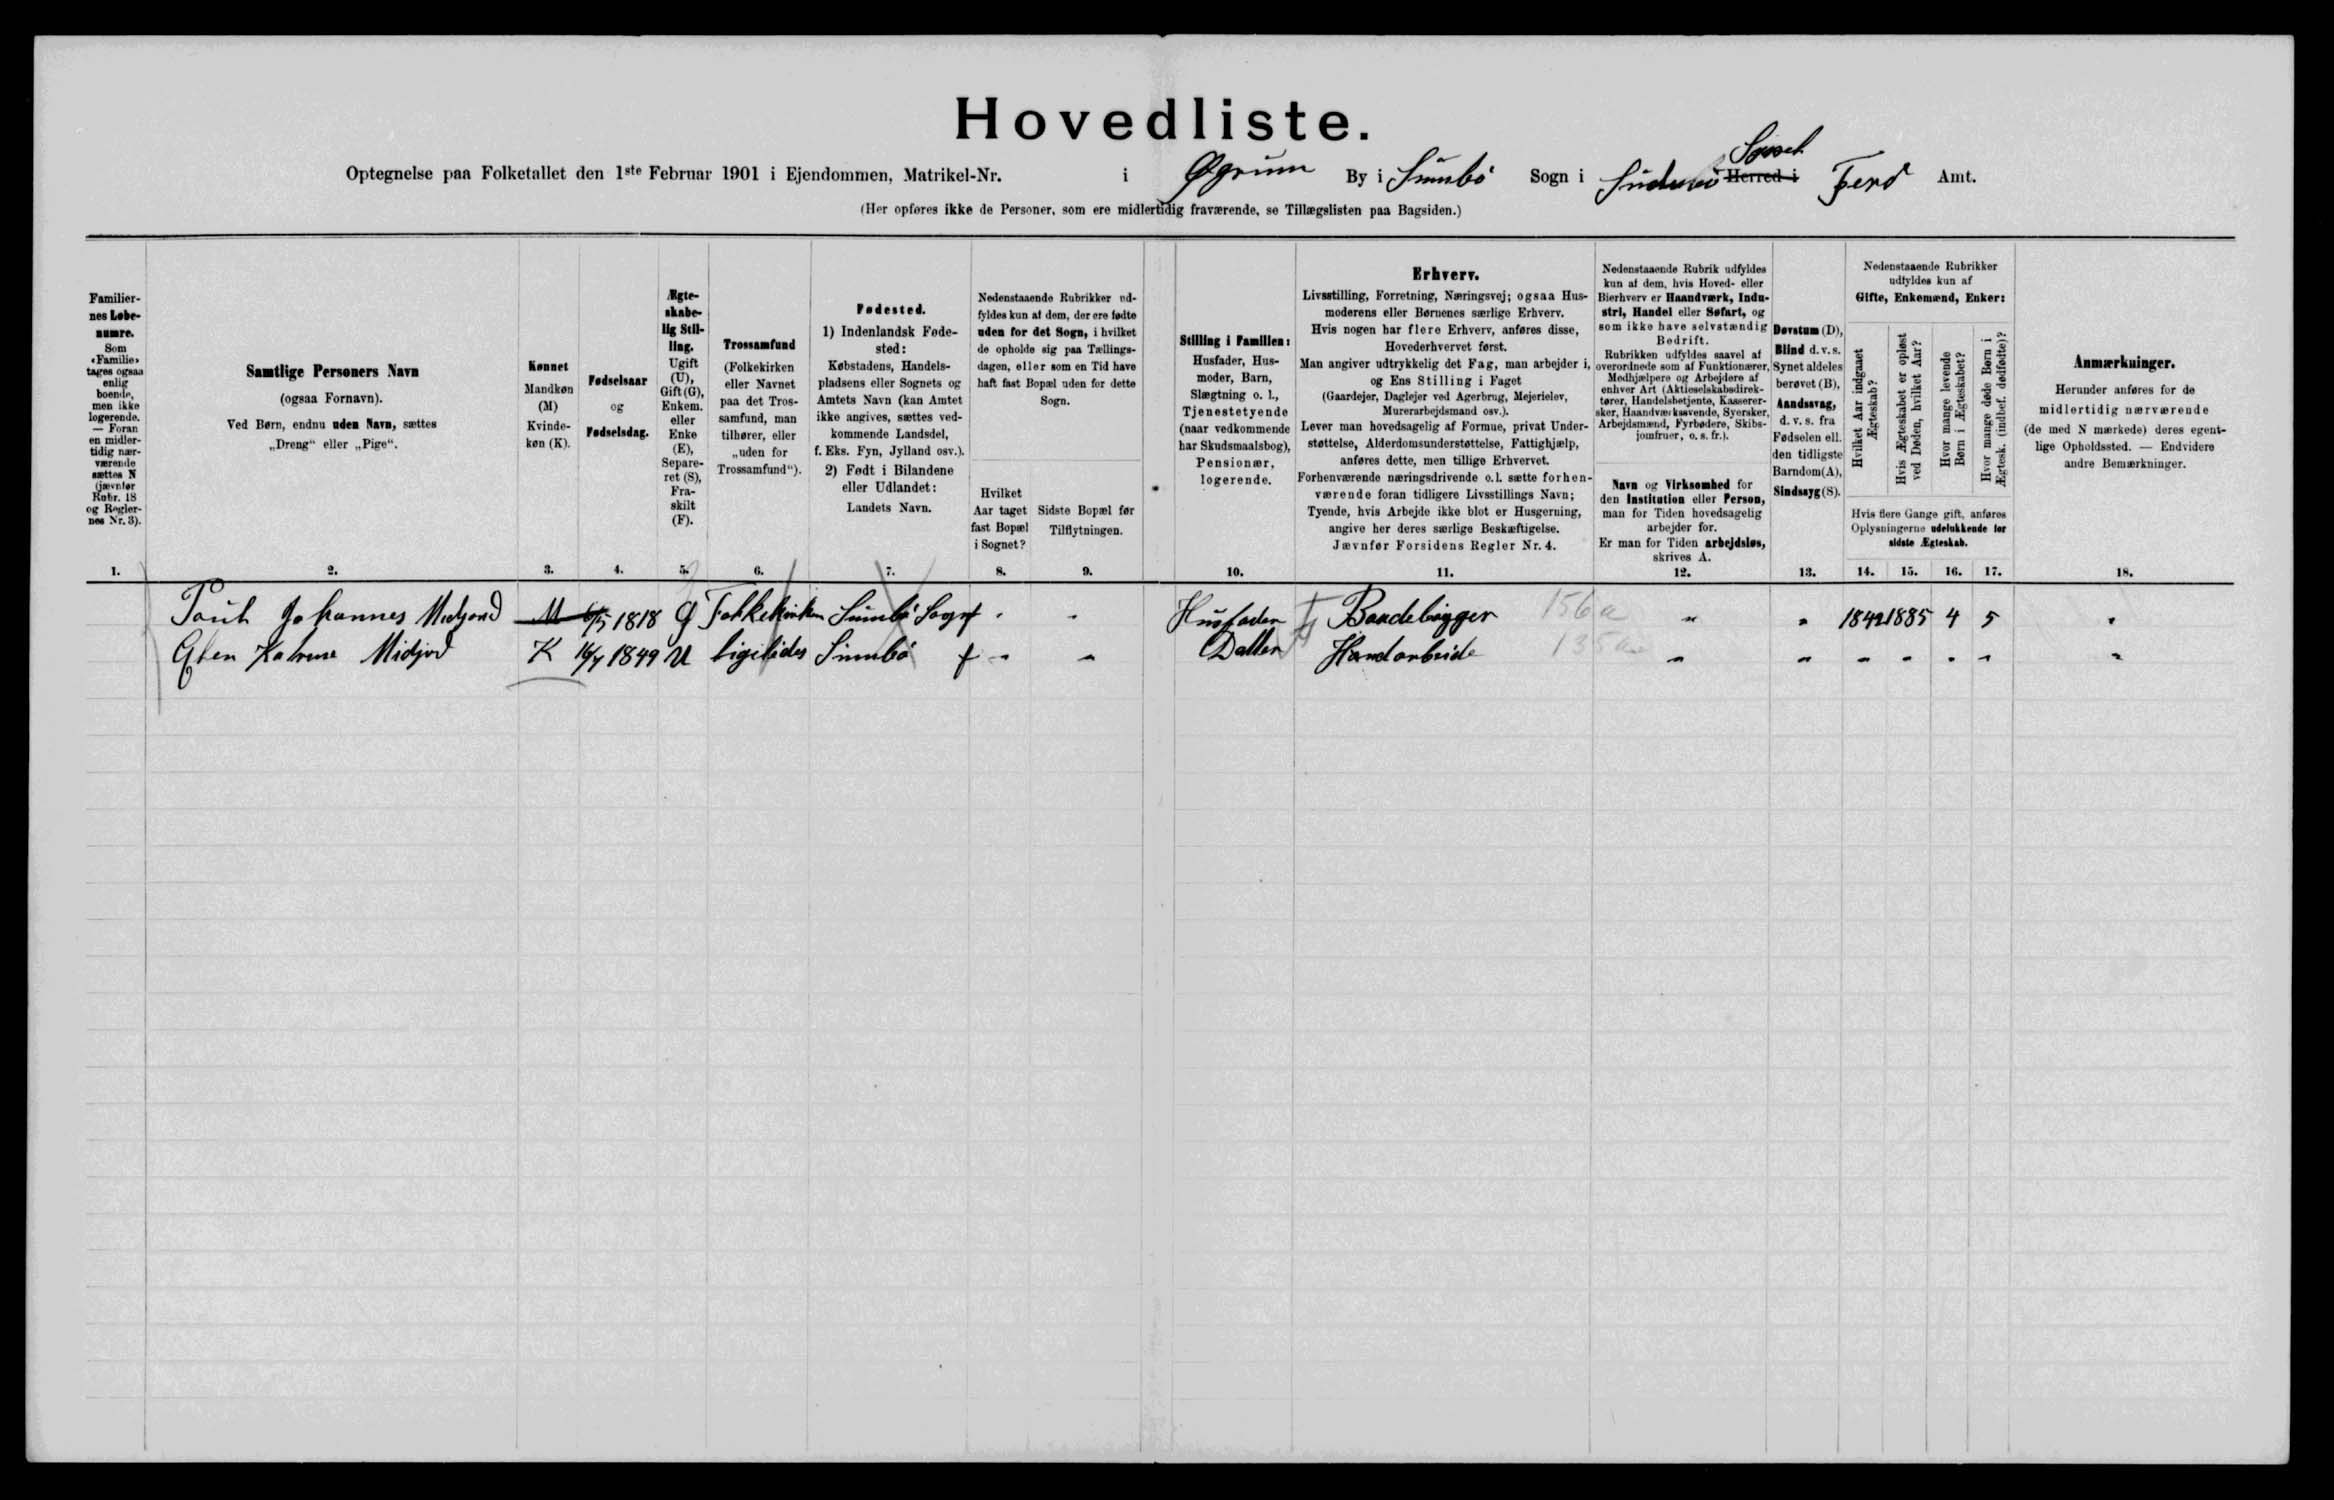 Hovedliste.
Optegnelse paa Folketallet den 1ste Februar 1901 i Ejendommen, Matrikel-Nr. i Øgrum By i Sumbö Sogn i Süderö Herred i Syssel Ferö Amt.
(Her opføres ikke de Personer, som ere midlertidig fraværende, se Tillægslisten paa Bagsiden.)
Familiernes Løbenumre.
Som «Familie» tages ogsaa enlig boende, men ikke logerende. — Foran en midlertidig nærværende sættes N (jævnfør Rubr. 18 og Reglernes Nr. 3).
Samtlige Personers Navn
(ogsaa Fornavn).
Ved Børn, endnu uden Navn, sættes
„Dreng“ eller „Pige“.
Kønnet
Mandkøn
(M)
Kvinde-
køn (K).
Fødselsaar
og
Fødselsdag.
Ægte-
skabe-
lig Stil-
ling.
Ugift
(U),
Gift (G),
Enkem.
eller
Enke
(E),
Separe-
ret (S),
Fra-
skilt
(F).
Trossamfund
(Folkekirken
eller Navnet
paa det Tros-
samfund, man
tilhører, eller
„uden for
Trossamfund“).
Fødested.
1) Indenlandsk Føde-
sted:
Købstadens, Handels-
pladsens eller Sognets og
Amtets Navn (kan Amtet
ikke angives, sættes ved-
kommende Landsdel,
f. Eks. Fyn, Jylland osv.).
2) Født i Bilandene
eller Udlandet:
Landets Navn.
Nedenstaaende Rubrikker ud-
fyldes kun af dem, der ere fødte
uden for det Sogn, i hvilket
de opholde sig paa Tællings-
dagen, eller som en Tid have
haft fast Bopæl uden for dette
Sogn.
Hvilket
Aar taget
fast Bopæl
i Sognet?
Sidste Bopæl før
Tilflytningen.
Stilling i Familien:
Husfader, Hus-
moder, Barn,
Slægtning o. l.,
Tjenestetyende
(naar vedkommende
har Skudsmaalsbog),
Pensionær,
logerende.
Erhverv.
Livsstilling, Forretning, Næringsvej; ogsaa Hus-
moderens eller Børnenes særlige Erhverv.
Hvis nogen har flere Erhverv, anføres disse,
Hovederhvervet først.
Man angiver udtrykkelig det Fag, man arbejder i,
og Ens Stilling i Faget
(Gaardejer, Daglejer ved Agerbrug, Mejerielev,
Murerarbejdsmand osv.).
Lever man hovedsagelig af Formue, privat Under-
støttelse, Alderdomsunderstøttelse, Fattighjælp,
anføres dette, men tillige Erhvervet.
Forhenværende næringsdrivende o.l. sætte forhen-
værende foran tidligere Livsstillings Navn;
Tyende, hvis Arbejde ikke blot er Husgerning,
angive her deres særlige Beskæftigelse.
Jævnfør Forsidens Regler Nr. 4.
Nedenstaaende Rubrik udfyldes
kun af dem, hvis Hoved- eller
Bierhverv er Haandværk, Indu-
stri, Handel eller Søfart, og
som ikke have selvstændig
Bedrift.
Rubrikken udfyldes saavel af
overordnede som af Funktionærer,
Medhjælpere og Arbejdere af
enhver Art (Aktieselskabsdirek-
tører, Handelsbetjente, Kasserer-
sker, Haandværkssvende, Syersker,
Arbejdsmænd, Fyrbødere, Skibs-
jomfruer, o. s. fr.).
Navn og Virksomhed for
den Institution eller Person,
man for Tiden hovedsagelig
arbejder for.
Er man for Tiden arbejdsløs,
skrives A.
Døvstum (D),
Blind d. v. s.
Synet aldeles
berøvet (B),
Aandssvag,
d. v. s. fra
Fødselen ell.
den tidligste
Barndom (A),
Sindssyg (S).
Nedenstaaende Rubrikker
udfyldes kun af
Gifte, Enkemænd, Enker:
Hvilket Aar indgaaet
Ægteskab?
Hvis Ægteskabet er opløst
ved Døden, hvilket Aar?
Hvor mange levende
Børn i Ægteskabet?
Hvor mange døde Børn i
Ægtesk. (indbef. dødfødte)?
Hvis flere Gange gift, anføres
Oplysningerne udelukkende for
sidste Ægteskab.
Anmærkninger.
Herunder anføres for de
midlertidig nærværende
(de med N mærkede) deres egent-
lige Opholdssted. — Endvidere
andre Bemærkninger.
1. 2. 3. 4. 5. 6. 7. 8. 9. 10. 11. 12. 13. 14. 15. 16. 17. 18.
Poul Johannes Midjord M 1818 Folkekirken Sumbö Sogn " " Husfader Baadebygger 156a " " 1842 1885 4 5 "
Elsen Katrine Midjord K 16/7 1849 U ligeledes Sumbö " " Datter Haandarbeide " " " " " " "